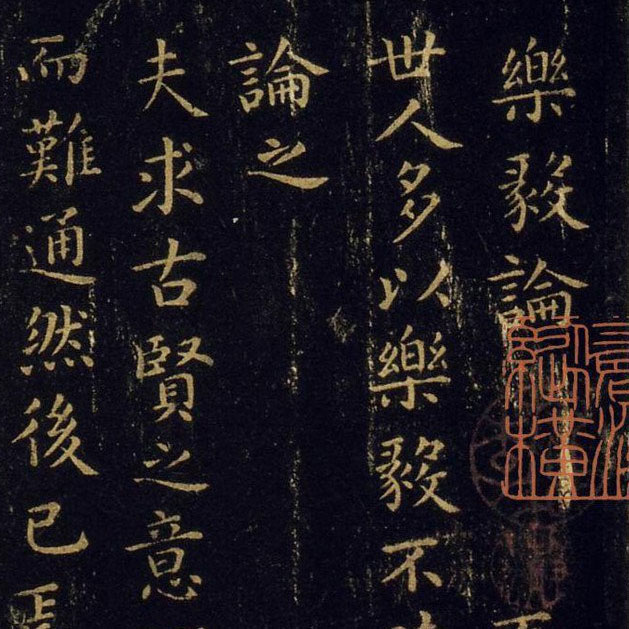 樂毅論
世人多以樂毅不
論之
夫求古賢之意
而難通然後已焉